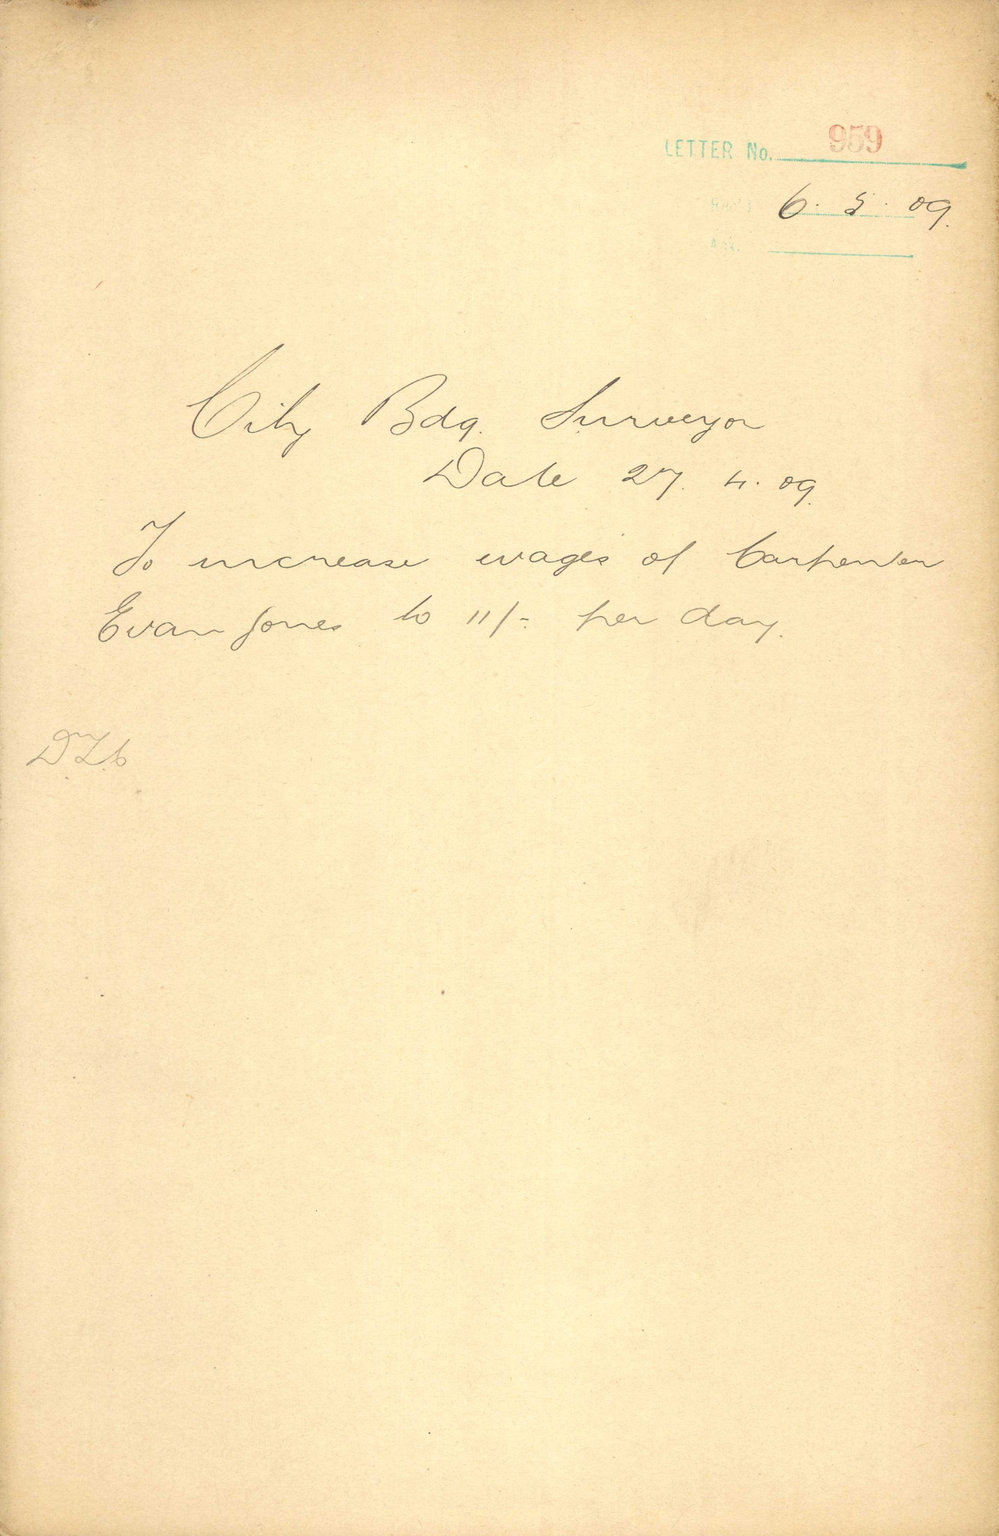 LETTER No. 959
6. 5. 09.
City Bdg. Surveyor
Date 27. 4. 09.
To increase wages of Carpenter
Evan Jones to 11/-. per day.